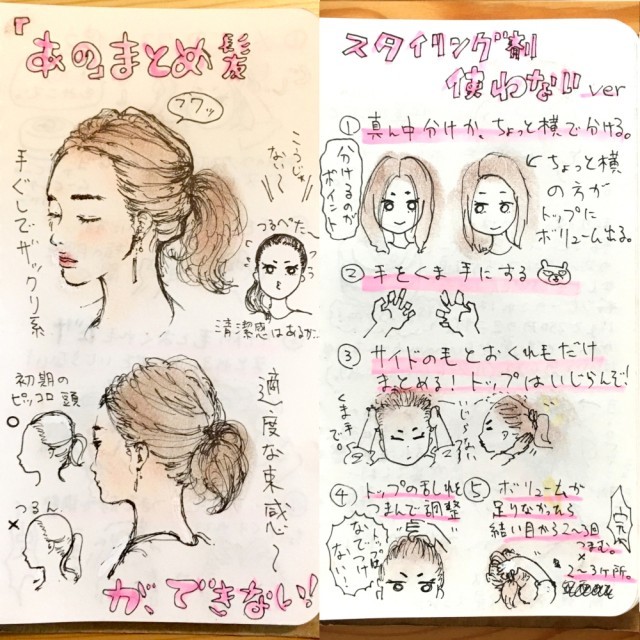 『あの、まとめ髪
フワッ
手ぐしでザックリ系
こうじゃ
ない〜
つるぺた〜っ
清潔感はあるが…
初期の
ピッコロ頭
○
つるん
×
適度な束感〜
が、できない!
スタイリング剤
使わない ver
① 真ん中分けか、ちょっと横で分ける。
分けるのが
ポイント
←ちょっと横
の方が
トップに
ボリューム出る。
② 手をくま手にする
③ サイドの毛とおくれ毛だけ
まとめる!トップはいじらんぞ!
くま手で。
いじらない
④ トップの乱れを
つまんで調整
トップは
なでつけ
ない!
⑤ ボリュームが
足りなかったら
結い目から2〜3回
つまむ。
×
2〜3ヶ所。